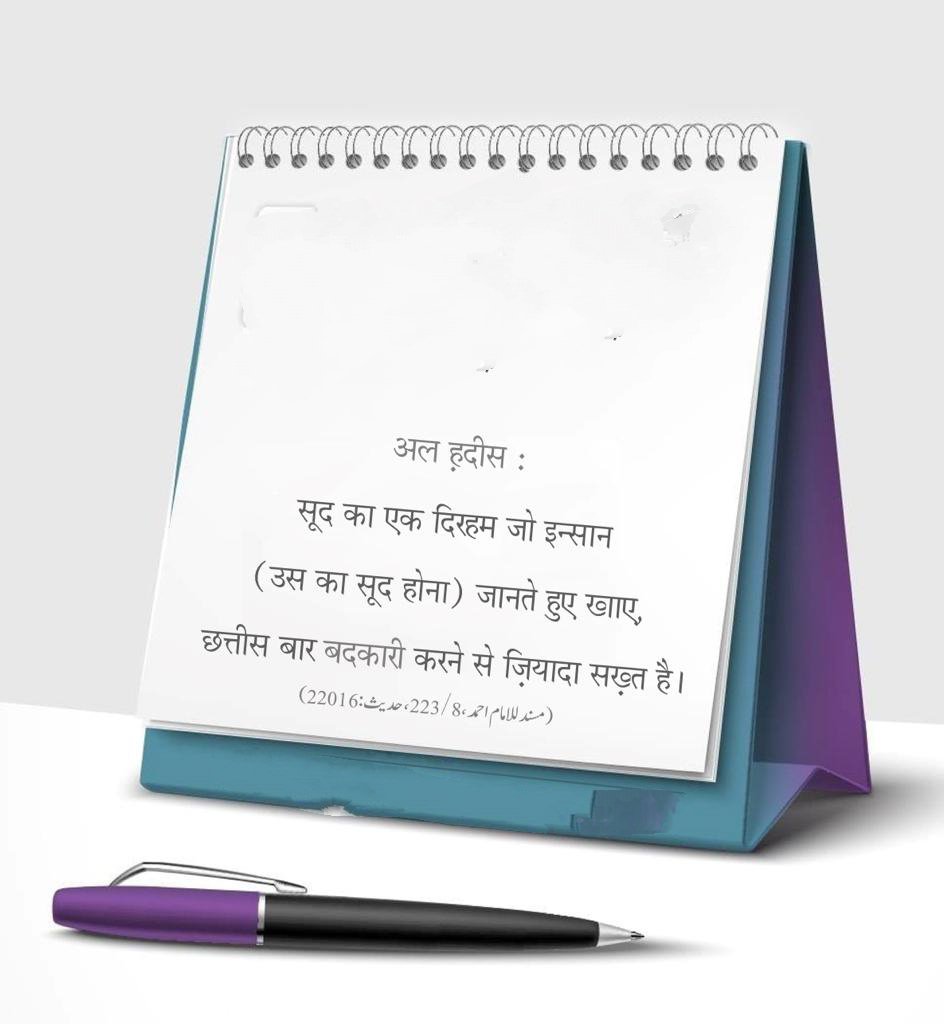 अल ह़दीस :
सूद का एक दिरहम जो इन्सान
(उस का सूद होना) जानते हुए खाए,
छत्तीस बार बदकारी करने से ज़ियादा सख़्त है।
(مسند للامام احمد،8/223، حدیث:22016)